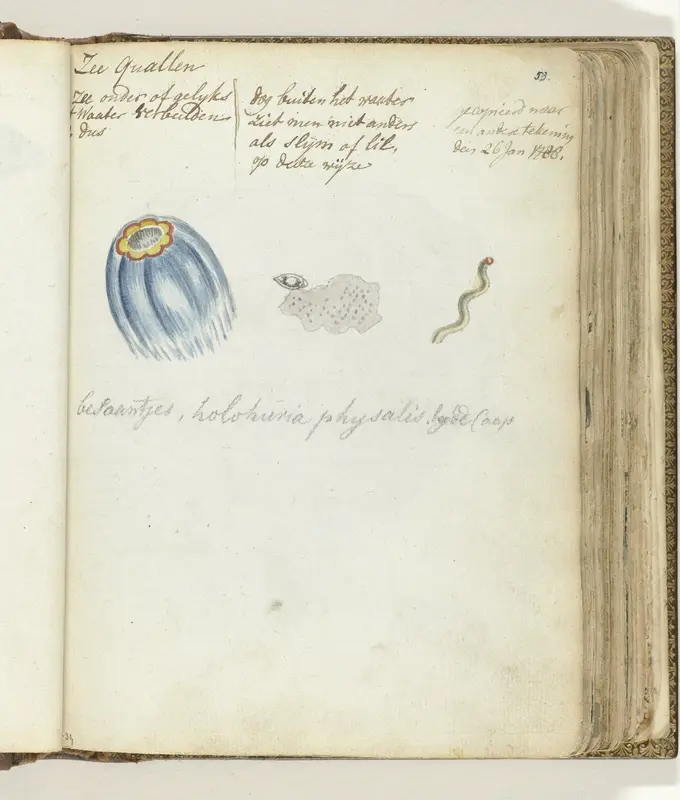 Zee Quallen
53.
Zee onder of gelyks
Waater verbeelden
dus
dog buiten het waater
ziet men niet anders
als slijm of lil,
op deeze wijze
gecopieerd naar
een andere tekening
den 26 Jan 1786.
besaantjes, holothuria physalis. by de Caap
34